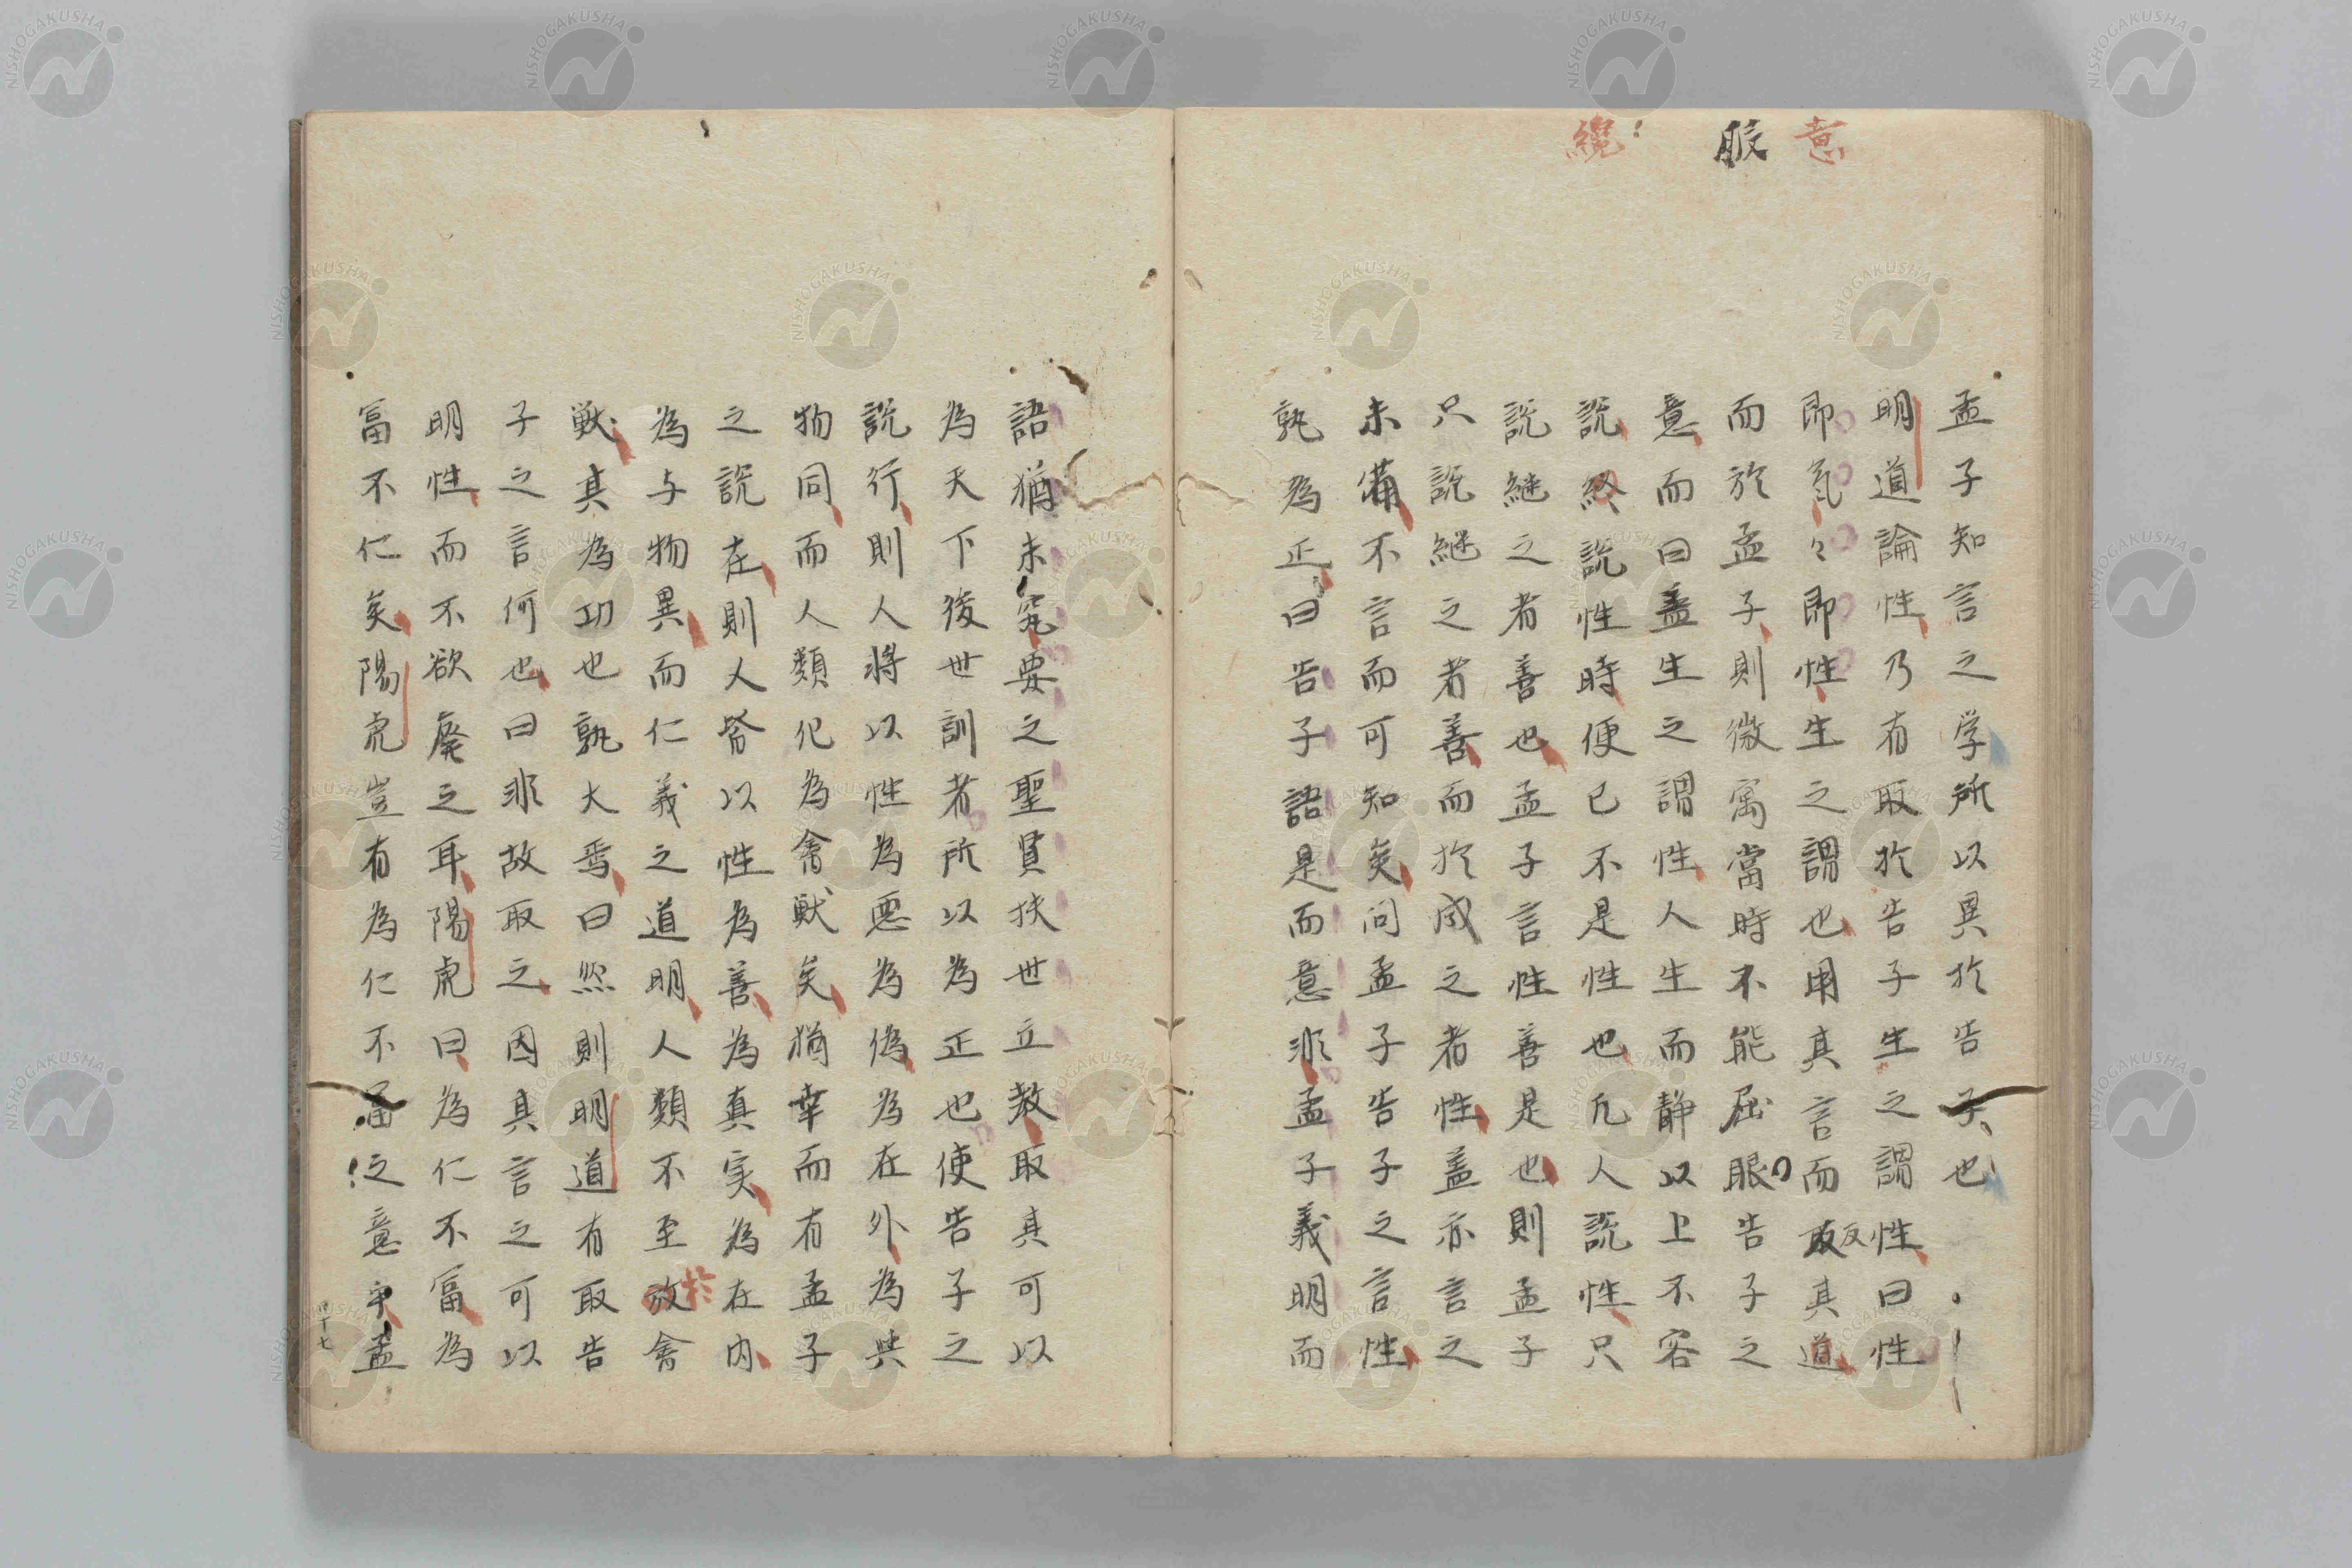 意
服
纔
孟子知言之学所以異於告子也
明道論性乃有取於告子生之謂性曰性
即気々即性生之謂也用其言而反其道
而於孟子則微寓當時不能屈眼告子之
意而曰蓋生之謂性人生而静以上不容
説終説性時便已不是性也凢人説性只
説継之者善也孟子言性善是也則孟子
只説継之者善而於成之者性蓋亦言之
未備不言而可知矣問孟子告子之言性
孰為正曰告子語是而意非孟子義明而
語猶未究要之聖賢扶世立教取其可以
為天下後世訓者所以為正也使告子之
説行則人将以性為悪為偽為在外為與
物同而人類化為禽獣矣猶幸而有孟子
之説在則人皆以性為善為真実為在内
為与物異而仁義之道明人類不至於禽
獣其為功也孰大焉曰然則明道有取告
子之言何也曰非故取之因其言之可以
明性而不欲廃之耳陽虎曰為仁不冨為
冨不仁矣陽虎豈有為仁不冨之意乎孟
四十七
NISHOGAKUSHA